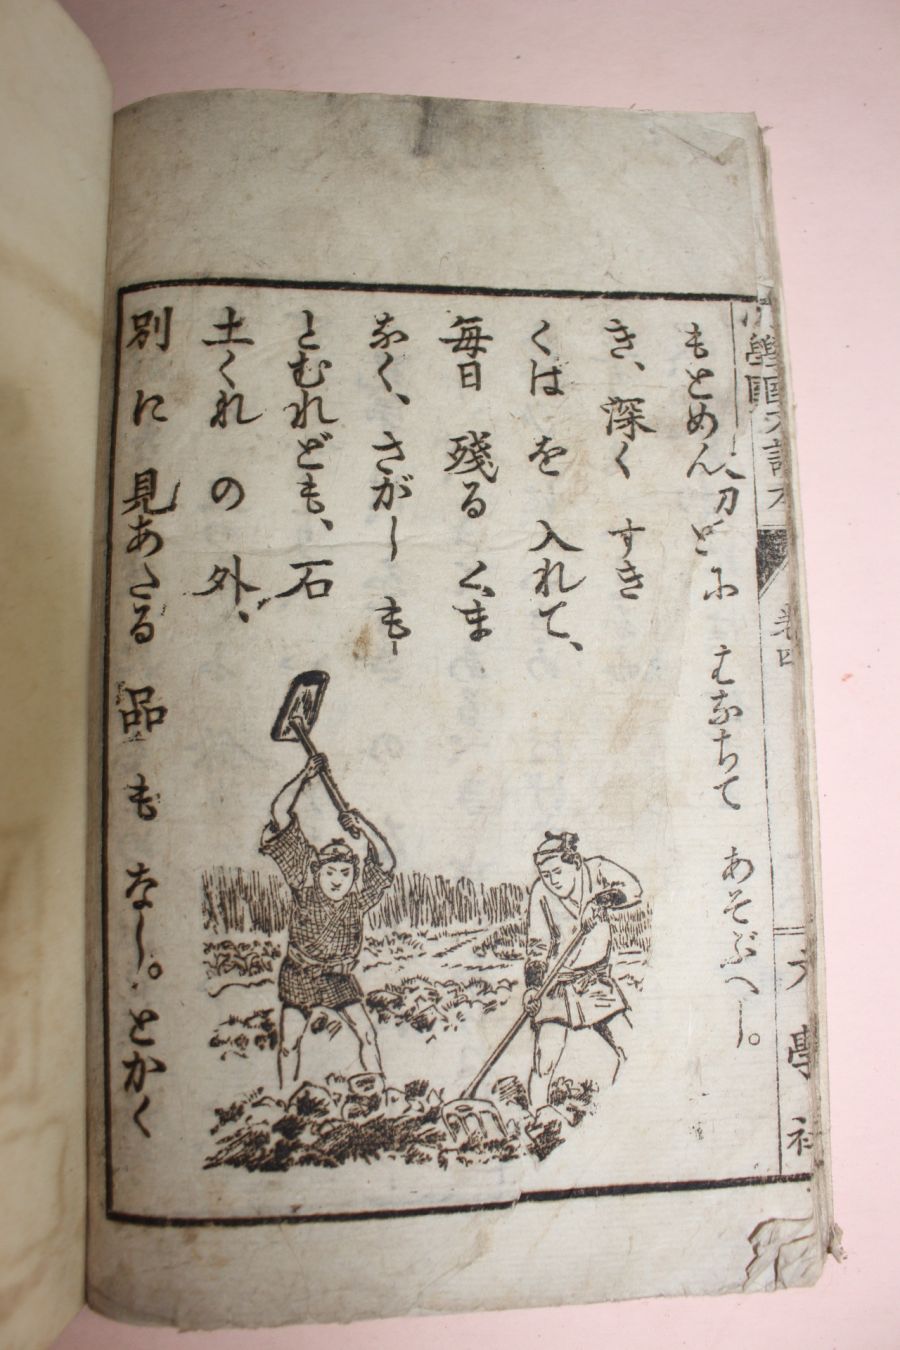 小學國文讀本 卷四
もとめん はなちて あそぶべし。
き、深く すき
くは を 入れて、
毎日 殘る くま
なく、さがし も
とむれども、石
土くれ の 外、
別 に 見あたる 品 も なし。とかく